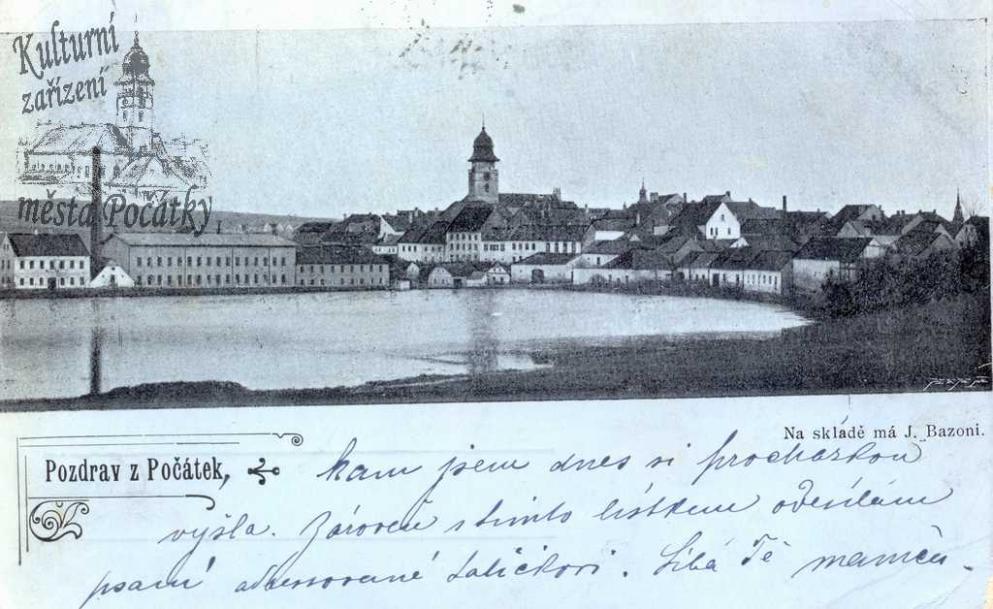 Kulturní
zařízení
města Počátky
Na skládě má J. Bazoni.
Pozdrav z Počátek,
kam jsem dnes si procházkou
vyšla. Zároveň s tímto lístkem odesílám
psaní adressované Laličkovi. Líbá Tě mamča.